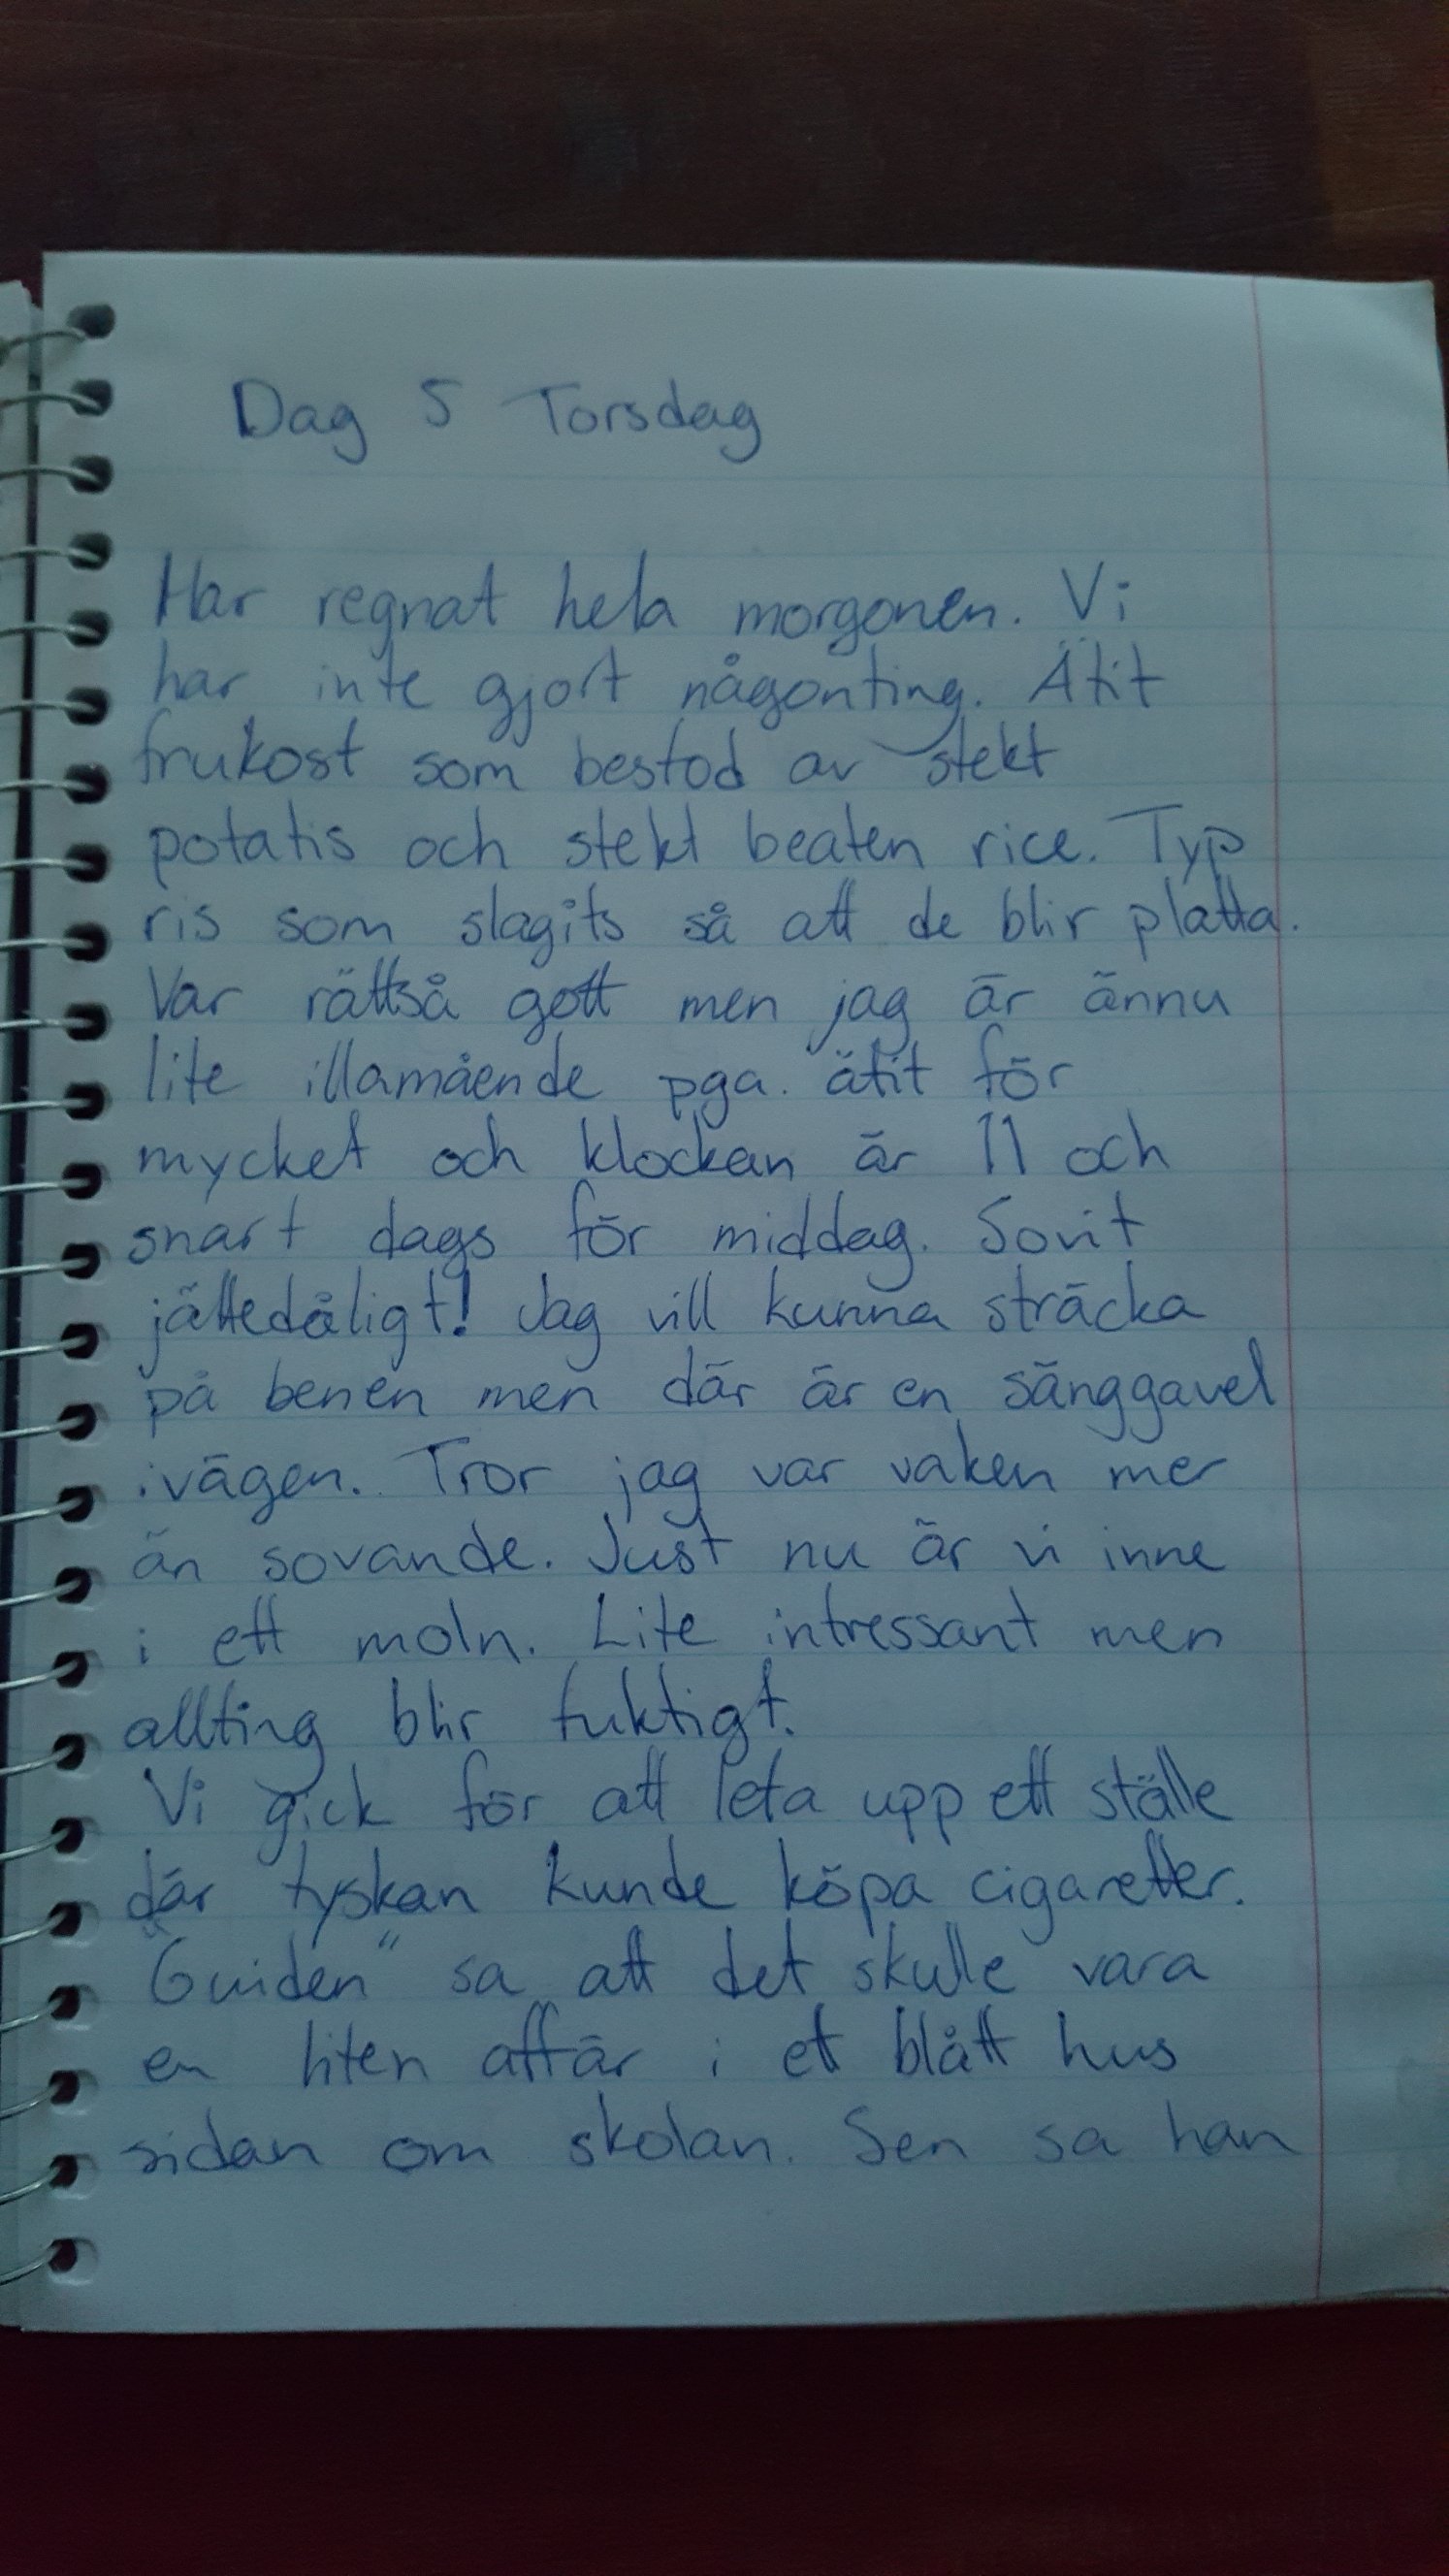 Dag 5 Torsdag
Har regnat hela morgonen. Vi
har inte gjort någonting. Ätit
frukost som bestod av stekt
potatis och stekt beaten rice. Typ
ris som slagits så att de blir platta.
Var rättså gott men jag är ännu
lite illamående pga. ätit för
mycket och klockan är 11 och
snart dags för middag. Sovit
jättedåligt! Jag vill kunna sträcka
på benen men där är en sänggavel
ivägen. Tror jag var vaken mer
än sovande. Just nu är vi inne
i ett moln. Lite intressant men
allting blir fuktigt.
Vi gick för att leta upp ett ställe
där tyskan kunde köpa cigaretter.
"Guiden" sa att det skulle vara
en liten affär i ett blått hus
sidan om skolan. Sen sa han